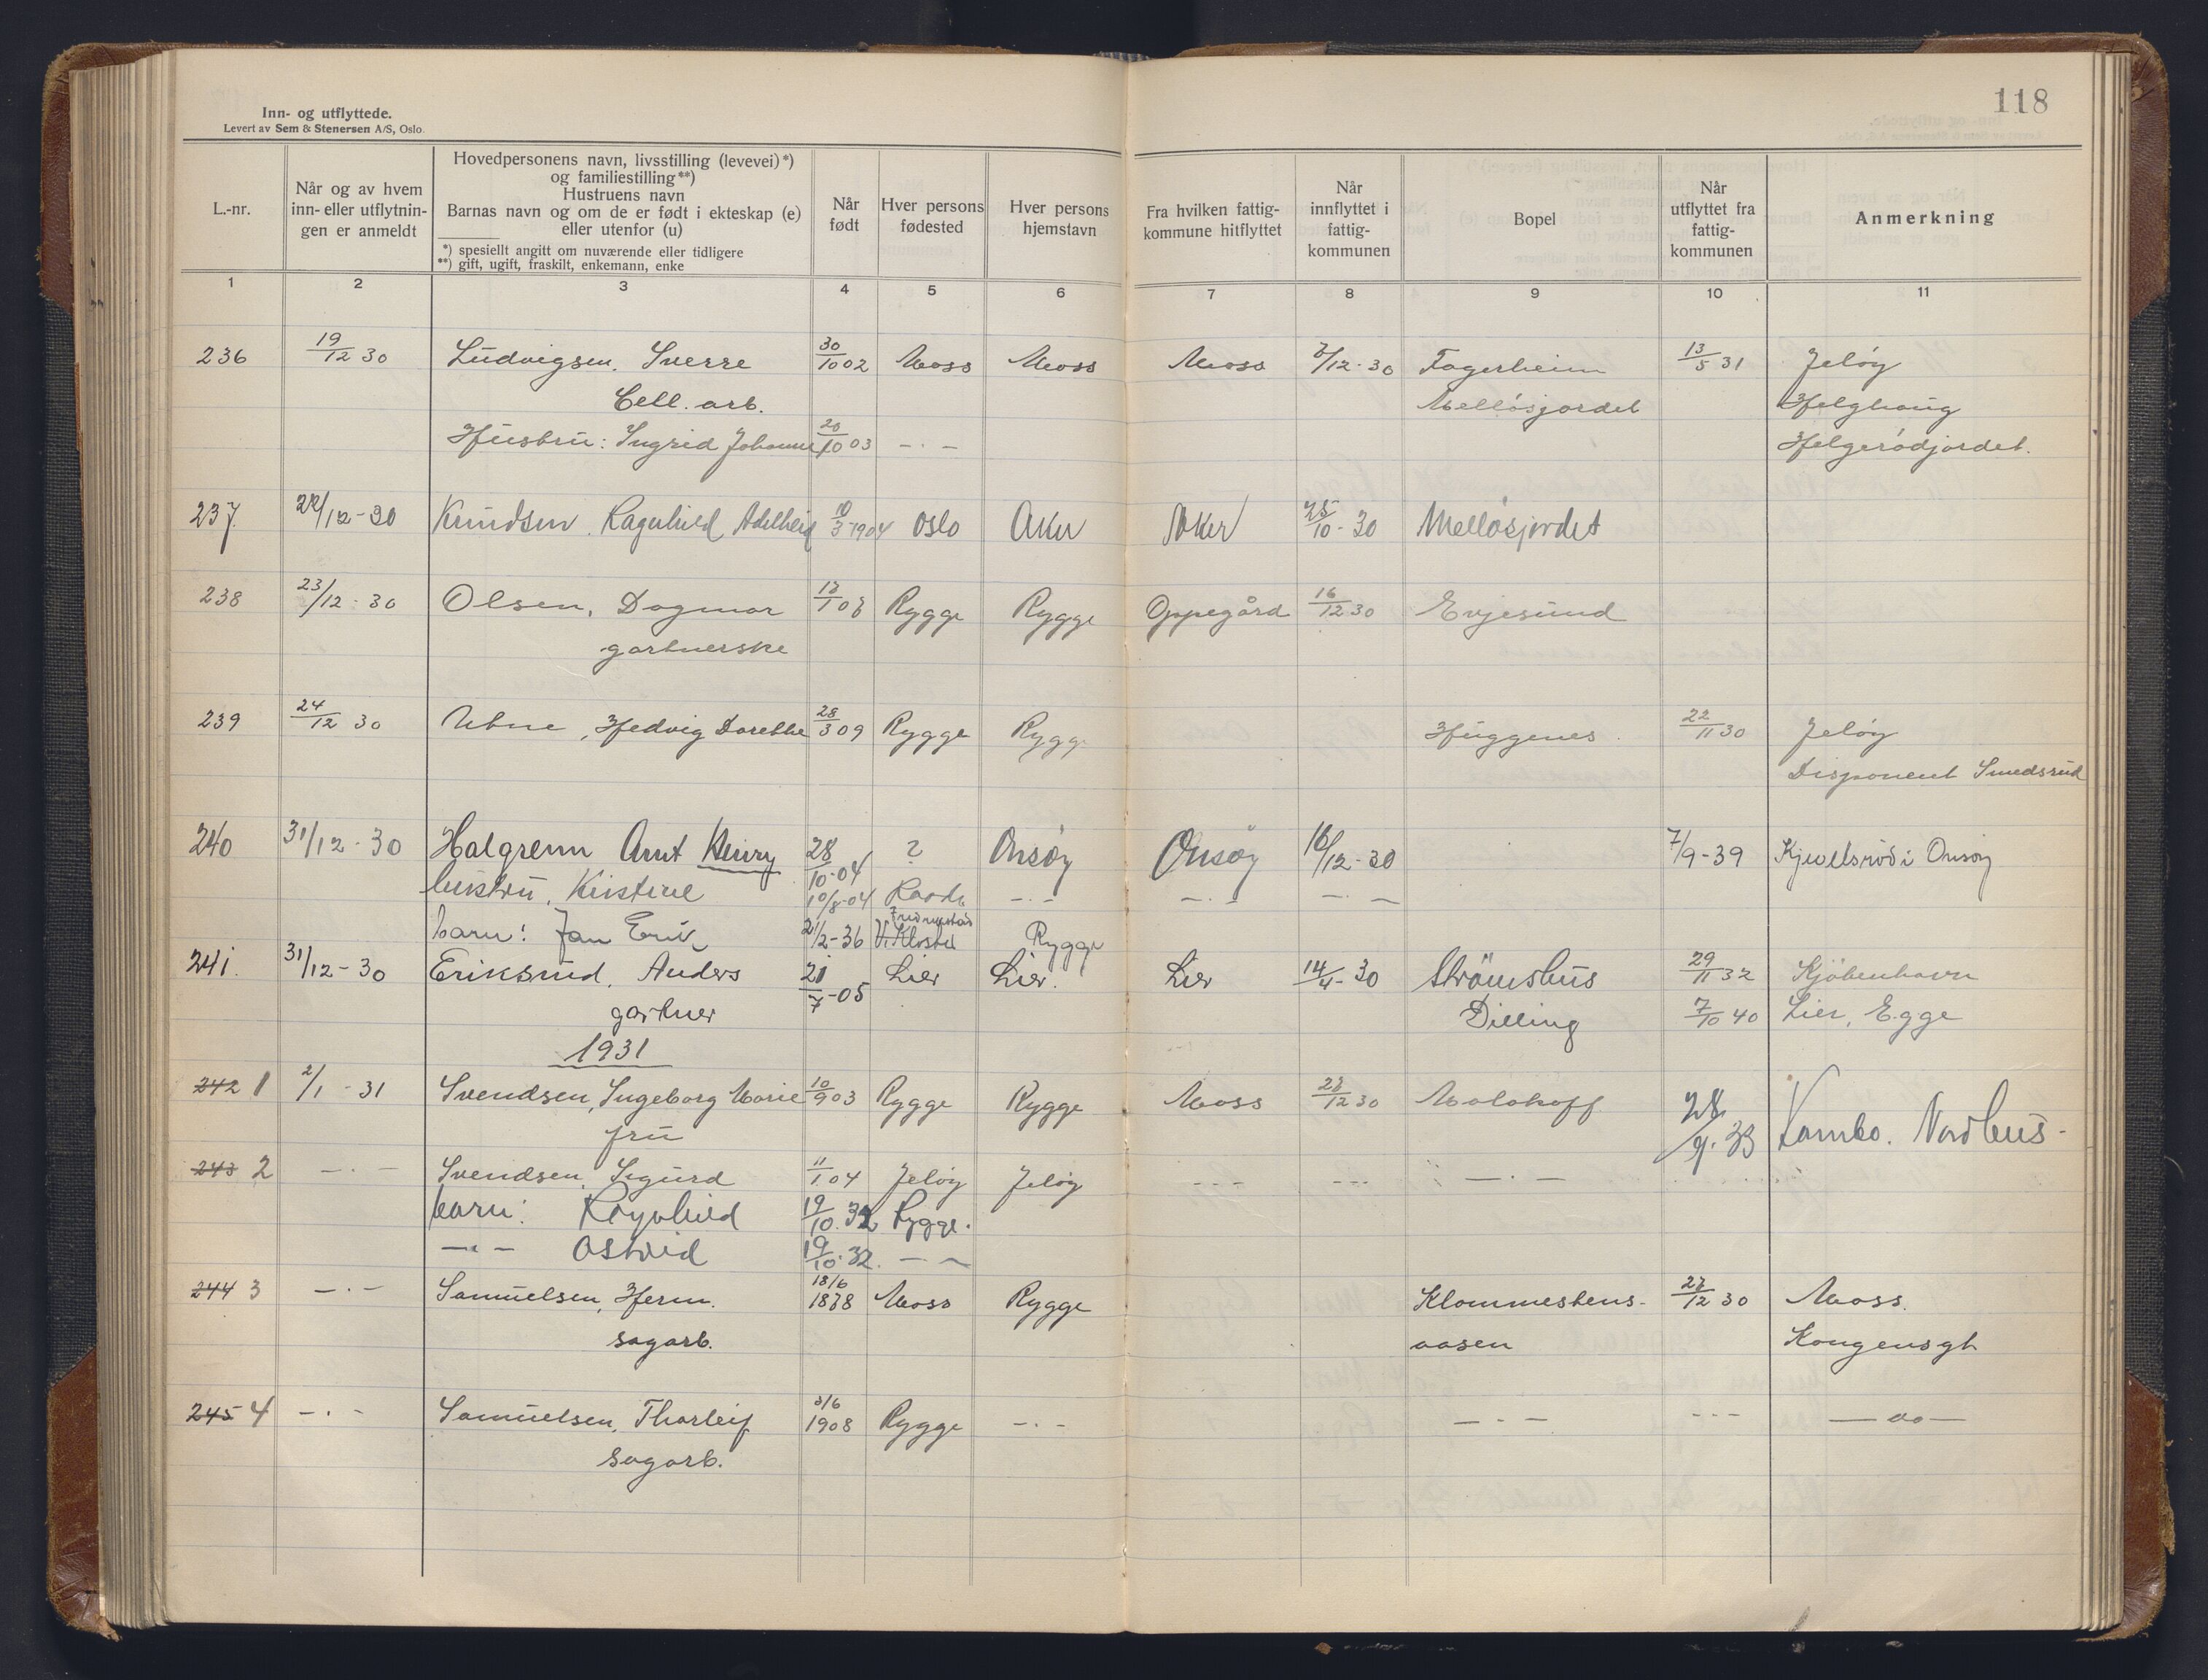 118
Inn- og utflyttede.
Levert av Sem & Stenersen A/S, Oslo.
L.-nr.
Når og av hvem inn- eller utflytnin- gen er anmeldt
Hovedpersonens navn, livsstilling (levevei)*) og familiestilling**)
Hustruens navn
Barnas navn og om de er født i ekteskap (e) eller utenfor (u)
*) spesiellt angitt om nuværende eller tidligere
**) gift, ugift, fraskilt, enkemann, enke
Når født
Hver persons fødested
Hver persons hjemstavn
Fra hvilken fattig- kommune hitflyttet
Når innflyttet i fattig- kommunen
Bopel
Når utflyttet fra fattig- kommunen
Anmerkning
1 2 3 4 5 6 7 8 9 10 11
236 19/12 30 Ludvigsen, Sverre 30/10 02 Moss Moss Moss /12-30 Fagerheim 13/5 31 Jeløy
Cell. arb. Melløsjordet Helghaug
Hustru: Ingrid Johanne 20/10 03 -.- Helgerødjordet.
237. 22/12-30 Knudsen, Ragnhild Adelheid 10/3-1904 Oslo Aker Aker 25/10-30 Melløsjordet
238 23/12-30 Olsen, Dagmar 13/1 08 Rygge Rygge Oppegård 16/12 30 Evjesund
gartnerske
239 24/12 30 Utne, Hedvig Dorethe 28/3 09 Rygge Rygge Huggenes 22/11 30 Jeløy
Disponent Smedsrud
240 31/12-30 Halgrenn Arnt Henry 28/10-04 ? Onsøy Onsøy 16/12-30 7/9-39 Kjevelsrød i Onsøy
hustru, Kristine 10/8-04 Raade -.- -.- -.-
barn: Jan Erik 21/2-36 Fredrikstad V. Kloster Rygge
241. 31/12-30 Eriksrud, Anders 21/7-05 Lier Lier. Lier 14/4-30 Strömshus 29/11 32 Kjøbenhavn
gartner Dilling 7/10 40 Lier, Egge
1931
242 1 2/1-31 Svendsen, Ingeborg Marie 10/9 03 Rygge Rygge Moss 23/12 30 Malakoff 28/9. 33 Kambo. Nordhus-
fru
243 2 -.- Svendsen, Sigurd 11/1 04 Jeløy Jeløy --- --- -.-
barn: Ragnhild 19/10. 32 Rygge.
-"- Astrid 19/10. 32. --
244 3 -.- Samuelsen, Herm. 18/6 1878 Moss Rygge Klommestens- 27/12 30 Moss.
sagarb. aasen Kongensgt
245 4 -.- Samuelsen, Thorleif 3/6 1908 Rygge -.- -.- --- -do-
Sagarb.